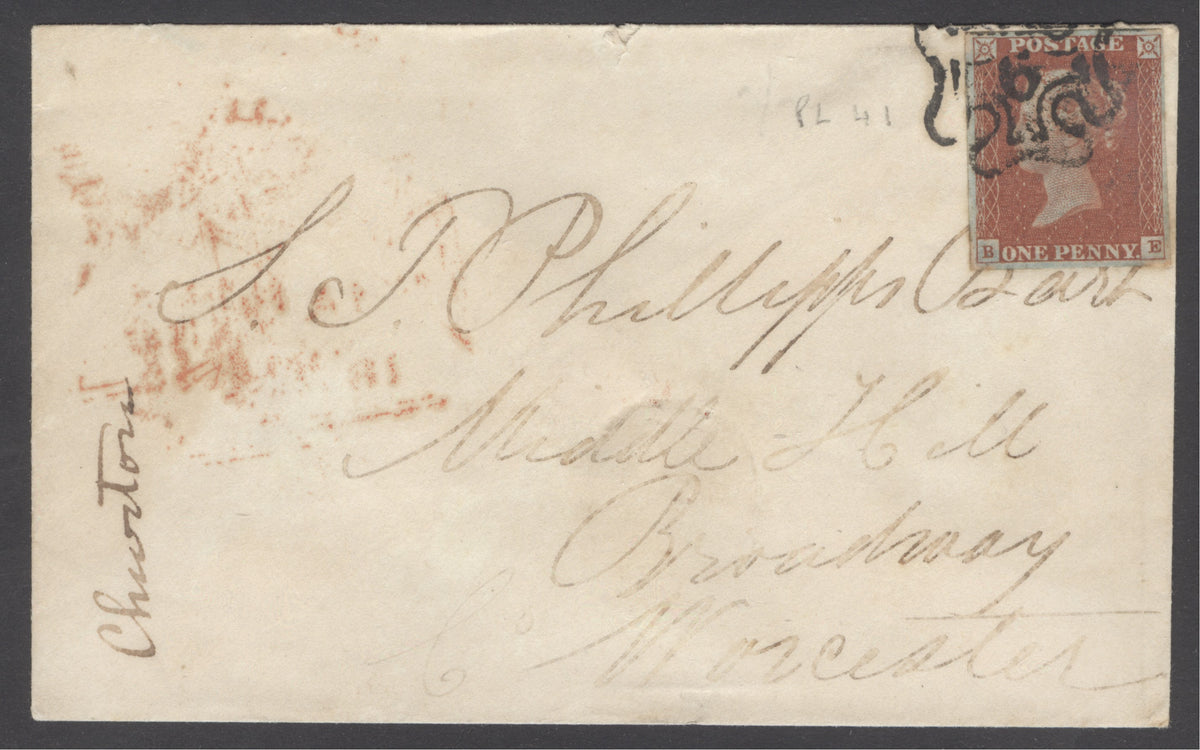 PL 41
POSTAGE
6
B ONE PENNY. E
S. T. Phillipps Bart
Middle Hill
Broadway
Co Worcester
Churton